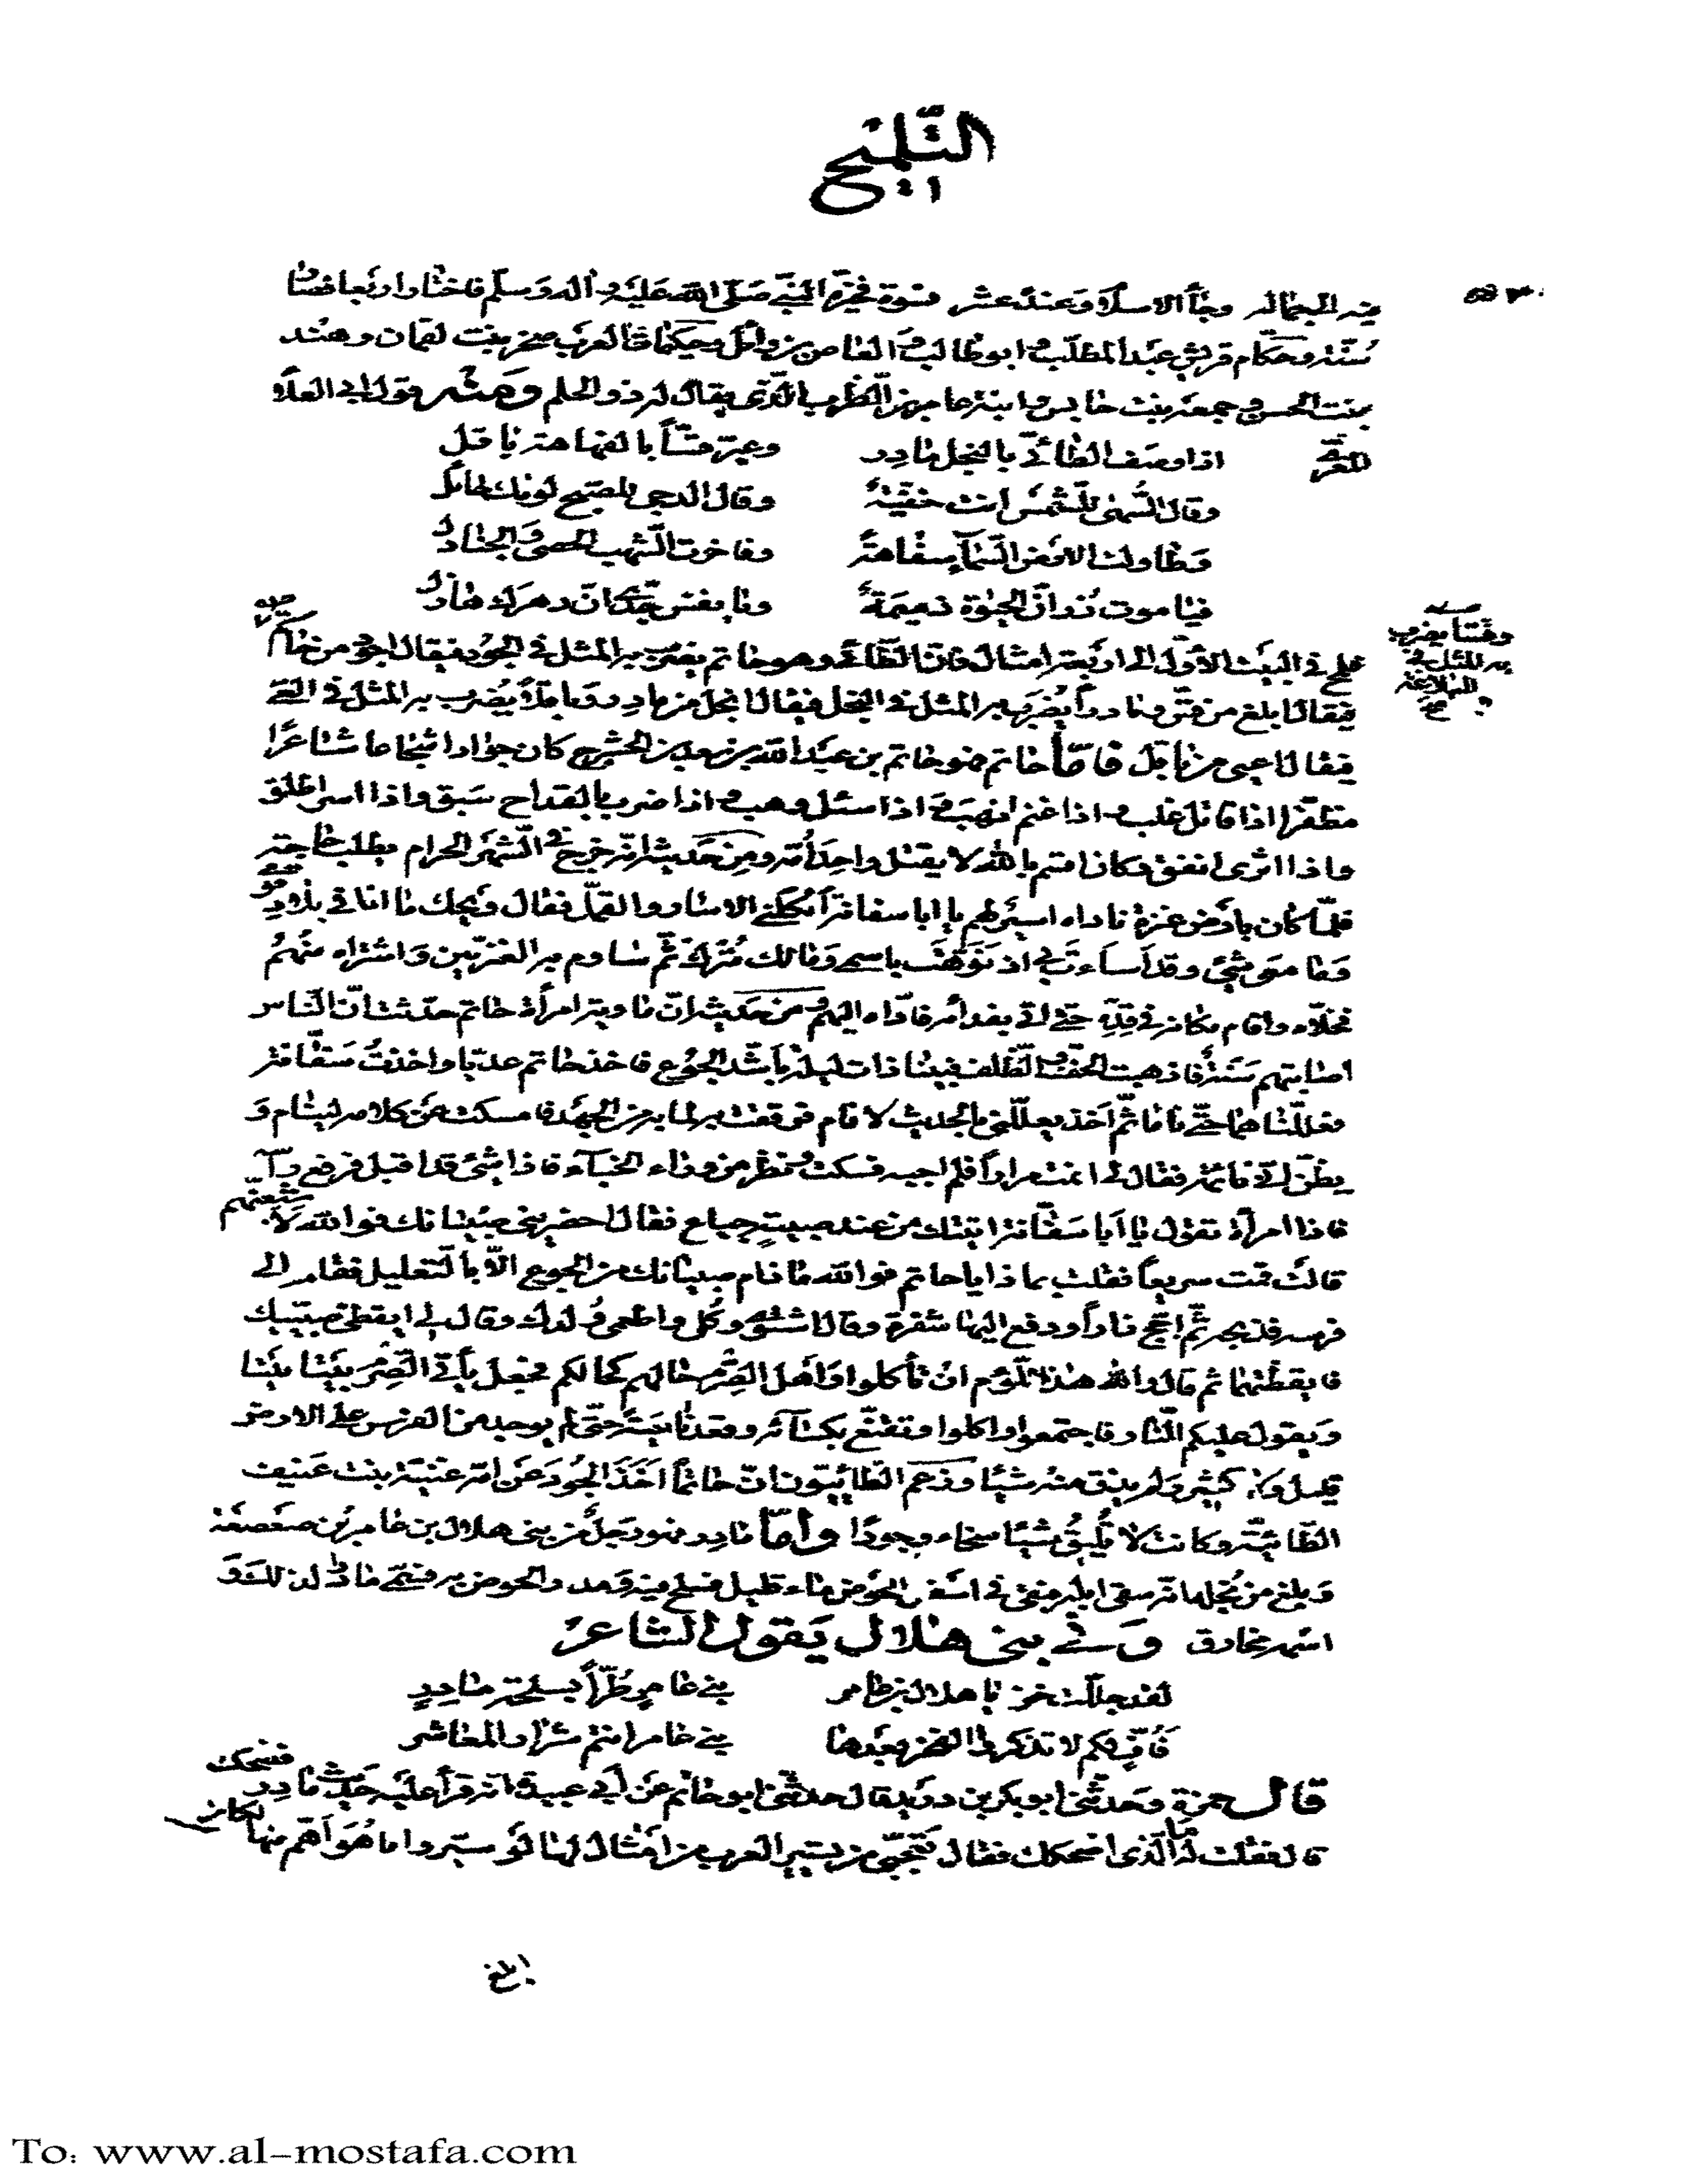 التلميح
فيه الجهاله وجاء الاسلام وعنده عشر نسوة فخيره النبي صلى الله عليه وآله وسلم فاختار اربعا فصار
سنة وحكام قريش عبد المطلب وابو طالب والعاص بن وائل وحكيمات العرب صخر بنت لقمان وهند
بنت الخس وجمعة بنت حابس وابنة عامر بن الظرب الذي يقال له ذو الحلم ومنه قول ابي العلاء
المعري
اذا وصف الطائي بالبخل مادر وعير قسا بالفهاهة باقل
وقال السهى للشمس انت خفية وقال الدجى للصبح لونك حائل
وطاولت الارض السماء سفاهة وفاخرت الشهب الحصى والجنادل
فيا موت زر ان الحيوة ذميمة ويا نفس جدي ان دهرك هازل
وقسا يضرب
به المثل في
البلاغة
صح
لمح في البيت الاول الى اربعة امثال فان الطائي وهو حاتم يضرب به المثل في الجود فيقال اجود من حاتم
فيقال ابلغ من قس ومادرا يضرب به المثل في البخل فيقال ابخل من مادر وباقلا يضرب به المثل في العي
فيقال اعيى من باقل فاما حاتم فهو حاتم بن عبد الله بن سعد بن الحشرج كان جوادا شجاعا شاعرا
مظفرا اذا قاتل غلب واذا غنم انهب واذا سئل وهب واذا ضرب بالقداح سبق واذا اسر اطلق
واذا اثرى انفق وكان اقسم بالله لا يقتل واحد امه ومن حديثه انه خرج في الشهر الحرام يطلب حاجة
فلما كان بارض عنزة ناداه اسير لهم يا ابا سفانة اكلني الاسار والقمل فقال ويحك ما انا في بلاد قومي
وما معي شئ وقد أسأت بي اذ نوهت باسمي ومالك مترك ثم ساوم به العنزيين واشتراه منهم
فخلاه واقام مكانه في قده حتى اتي بفدائه فاداه اليهم ومن حديثه ان ماوية امرأة حاتم حدثت ان الناس
اصابتهم سنة فاذهبت الخف والظلف فبتنا ذات ليلة باشد الجوع فاخذ حاتم عديا واخذت سفانة
فعللناهما حتى ناما ثم اخذ يعللني بالحديث لانام فرققت به لما به من الجهد فامسكت عن كلامه لينام و
يظن اني نائمة فقال لي انمت مرارا فلم اجبه فسكت ونظر من وراء الخباء فاذا شئ قد اقبل فرفع رأسه
فاذا امرأة تقول يا ابا سفانة اتيتك من عند صبية جياع فقال احضريني صبيانك فوالله لاشبعنهم
قالت قمت سريعا فقلت بماذا يا حاتم فوالله ما نام صبيانك من الجوع الا بالتعليل فقام الى
فرسه فذبحه ثم اجج نارا ودفع اليها شفرة وقال اشتوي وكلي واطعمي ولدك وقال لي ايقظي صبيتيك
فايقظتهما ثم قال والله هذا للؤم ان تأكلوا واهل الصرم حالهم كحالكم فجعل يأتي الصرم بيتا بيتا
ويقول عليكم النار فاجتمعوا واكلوا وتقنع بكسائه وقعد ناحية حتى لم يوجد من الفرس على الارض
قليل ولا كثير ولم يذق منه شيئا وزعم الطائيون ان حاتما اخذ الجود عن امه عنبة بنت عفيف
الطائية وكانت لا تليق شيئا سخاء وجودا واما مادر فهو رجل من بني هلال بن عامر بن صعصعة
وبلغ من بخله انه سقى ابله فبقي في اسفل الحوض ماء قليل فسلح فيه ومدر الحوض به فسمي مادرا لذلك و
اسمه مخارق وفي بني هلال يقول الشاعر
لقد جللت خزيا هلال بن عامر بني عامر طرا بسلحة مادر
فاف لكم لا تذكروا الفخر بعدها بني عامر انتم شرار المعاشر
قال حمزة وحدثني ابو بكر بن دريد قال حدثني ابو حاتم عن ابي عبيدة انه قرأ عليه حديث مادر فضحك
قال فقلت له ما الذي اضحكك فقال تعجبي من تسيير العرب من امثال لها لو سيروا ما هو اهم منها لكان
ابلغ
To: www.al-mostafa.com